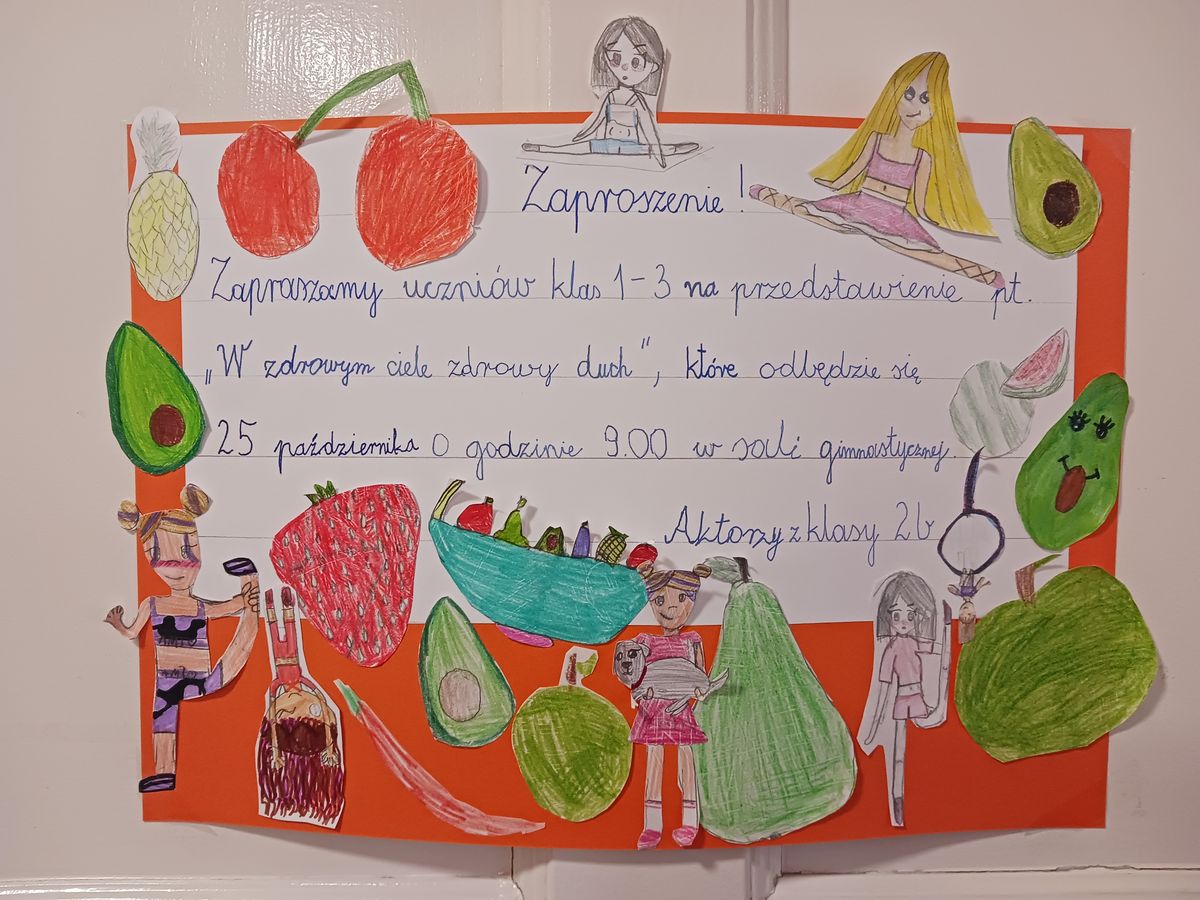 Zaproszenie!
Zapraszamy uczniów klas 1-3 na przedstawienie pt.
„W zdrowym ciele zdrowy duch", które odbędzie się
25 października o godzinie 9.00 w sali gimnastycznej.
Aktorzy z klasy 2b